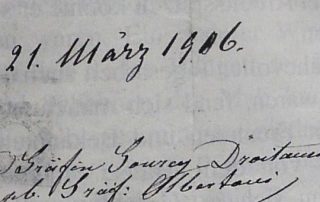 21. März 1906.
Gräfin Sourcy-Droitaum
geb. Gräf: Albertoni